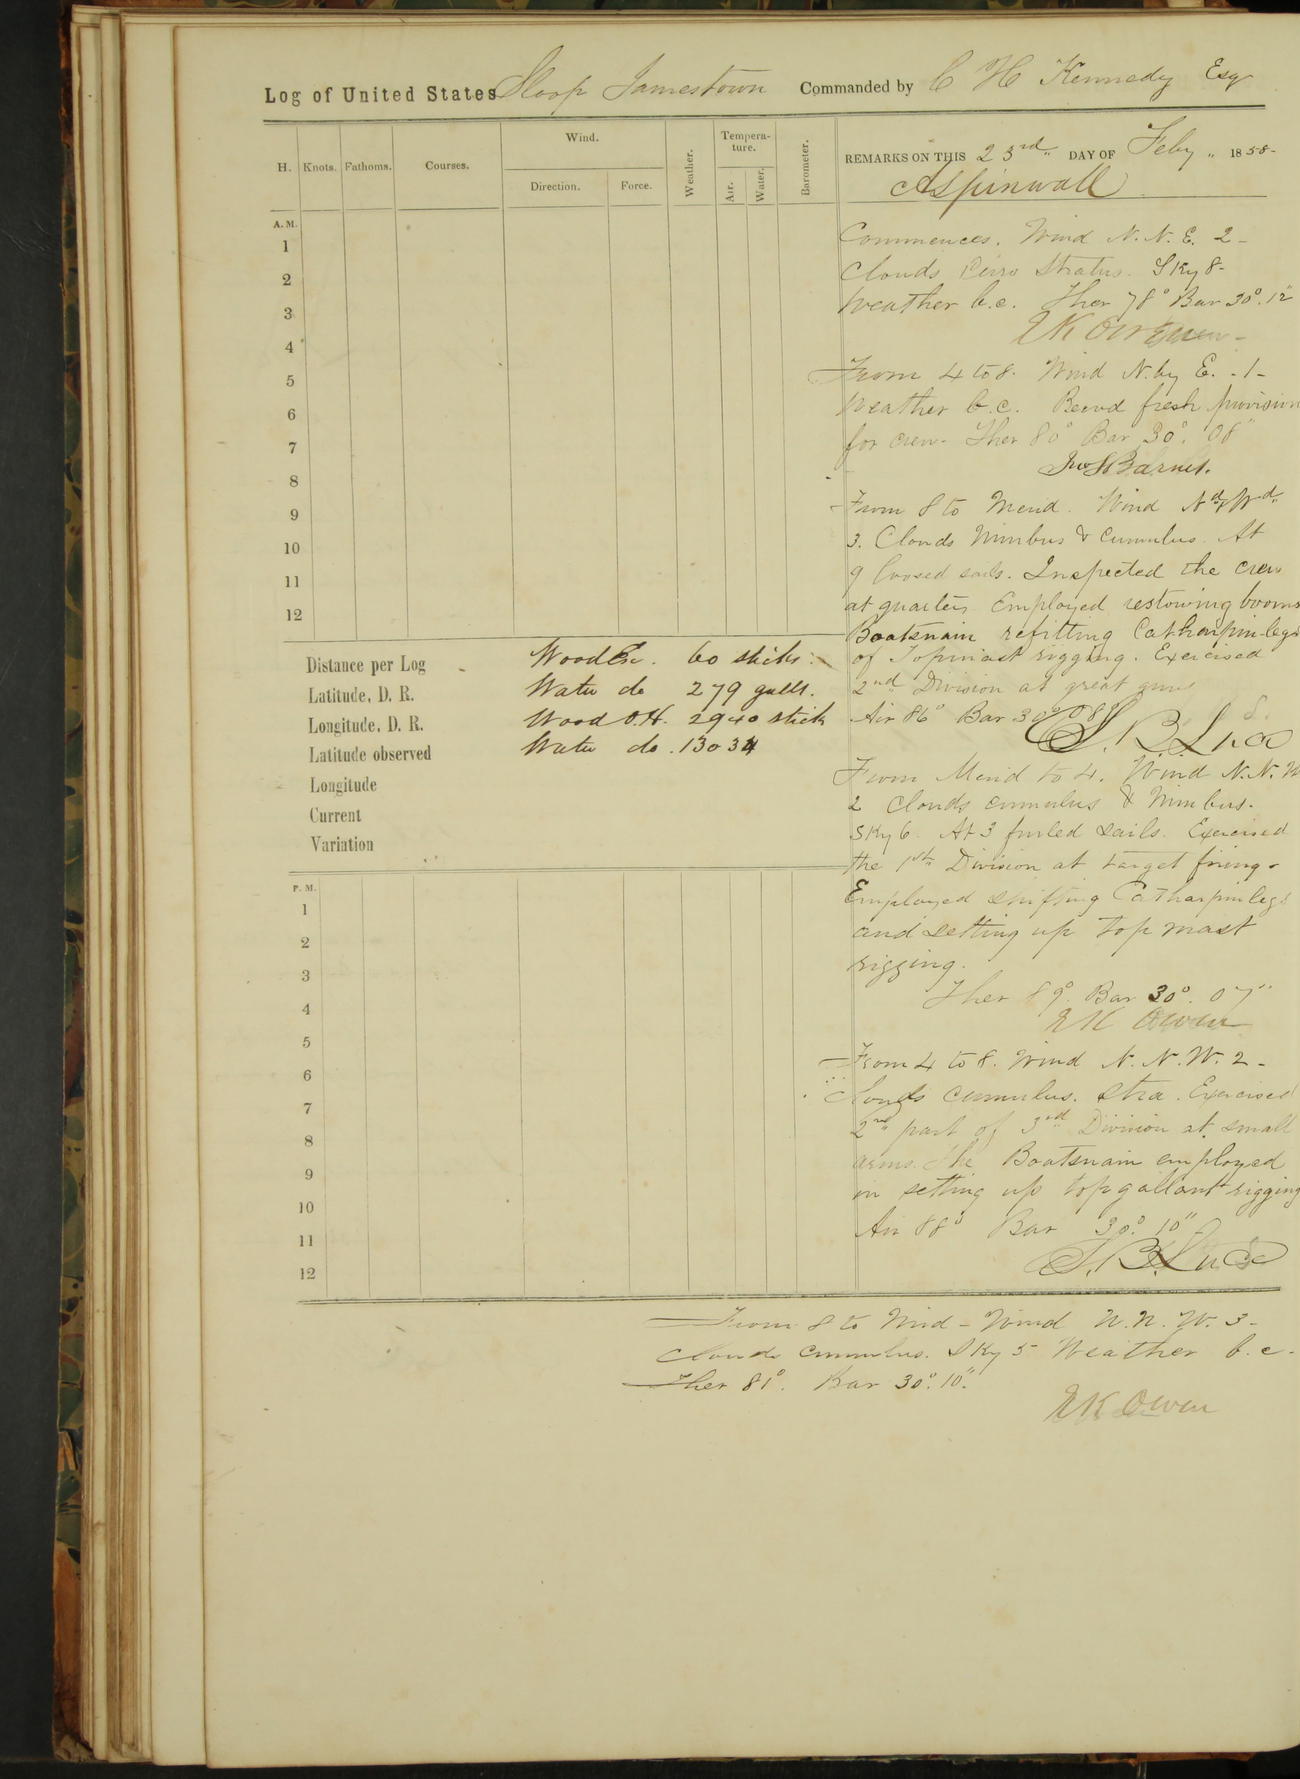 Log of United States Sloop Jamestown Commanded by C H Kennedy Esq
H. Knots. Fathoms. Courses. Wind. Direction. Force. Weather. Tempera-ture. Air. Water. Barometer.
REMARKS ON THIS 23rd DAY OF Feby 1858-
Aspinwall
A. M.
1
2
3
4
5
6
7
8
9
10
11
12
Commences. Wind N. N. E. 2-
Clouds Cirro Stratus. Sky 8-
Weather b.c. Ther 78° Bar 30°.12"
E K Owen
From 4 to 8. Wind N. by E. -1-
Weather b.c. Recvd fresh provision
for crew- Ther 80° Bar 30°. 08"
Jno S Barnes.
From 8 to Merid. Wind Nd & Wd
3. Clouds Nimbus & Cumulus. At
9 loosed sails. Inspected the crew
at quarters Employed restowing booms
Boatswain refitting Catharpin-legs
of Topmast rigging. Exercised
2nd Division at great guns
Air 86° Bar 30° 08"
S. B. Luce
Distance per Log
Latitude, D. R.
Longitude, D. R.
Latitude observed
Longitude
Current
Variation
Wood Ex. 60 sticks.
Water do 279 galls.
Wood O.H. 2940 stick
Water do. 13034
From Merid to 4. Wind N. N. W
2 Clouds cumulus & Nimbus.
Sky 6. At 3 furled sails. Exercised
the 1st Division at target firing-
Employed shifting Catharpinlegs
and setting up top mast
rigging.
Ther 89°. Bar 30°. 07"
E K Owen
P. M.
1
2
3
4
5
6
7
8
9
10
11
12
From 4 to 8. Wind N. N. W. 2-
Clouds cumulus. stra. Exercised
2nd part of 3rd Division at small
arms. The Boatswain employed
in setting up topgallant rigging
Air 88° Bar 30°. 10"
S. B. Luce
From 8 to Mid- Wind N. N. W. 3-
Clouds cumulus. Sky 5 Weather b. c-
Ther 81°. Bar 30°. 10".
E K Owen